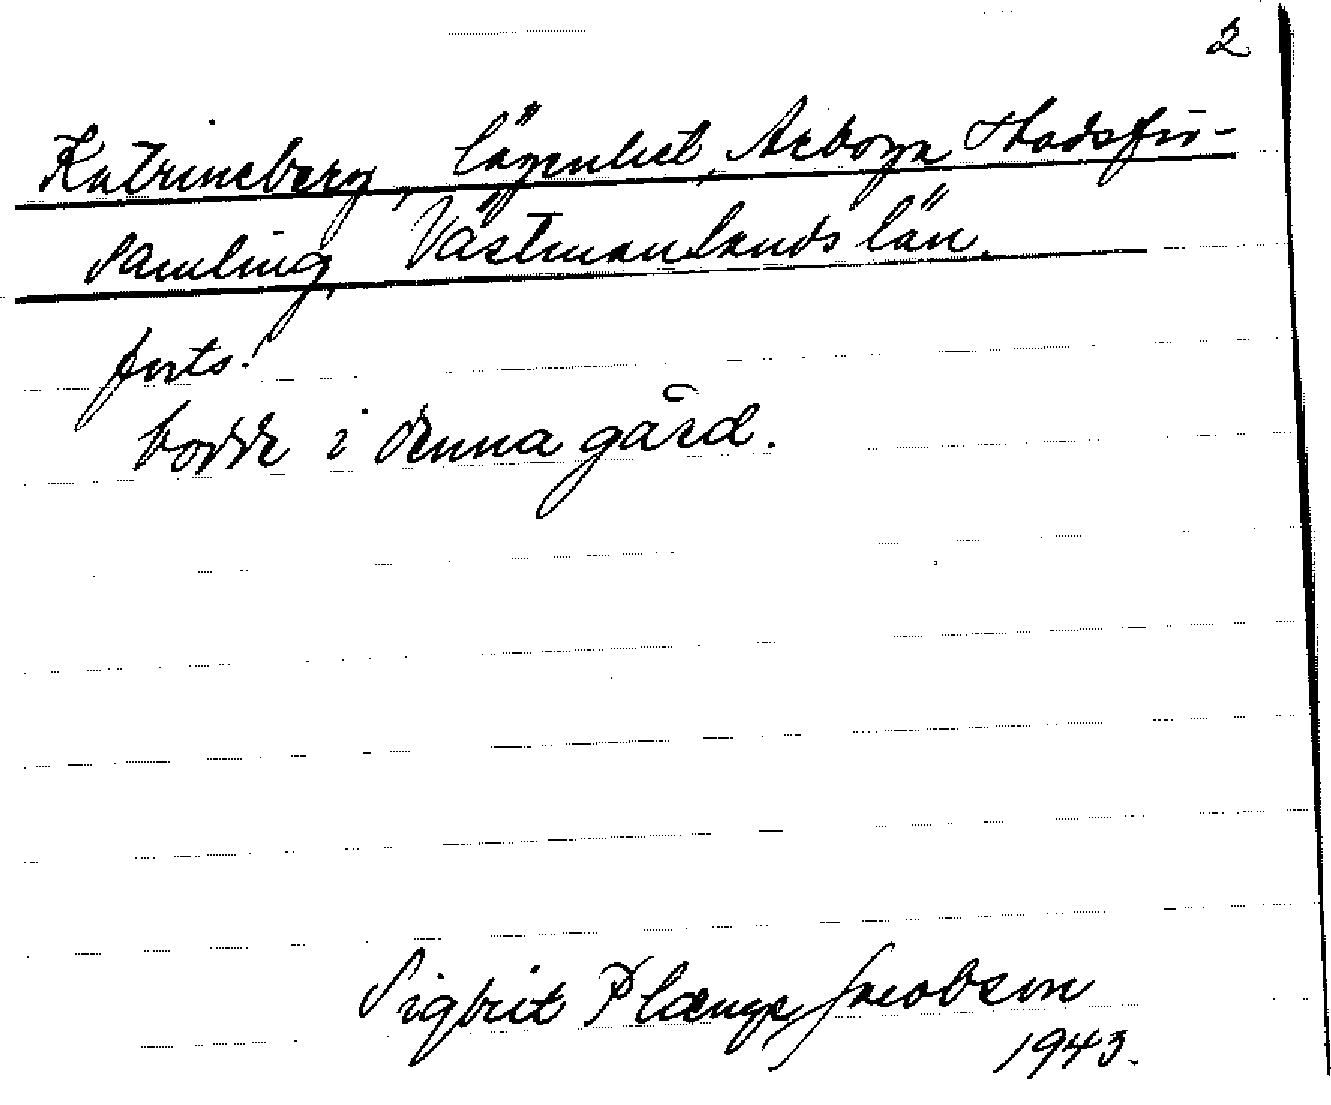 2
Katrineberg, lägenhet, Arboga stadsför-
samling, Västmanlands län.
forts.
bodde i denna gård.
Sigbrit Plænge Jacobson
1943.